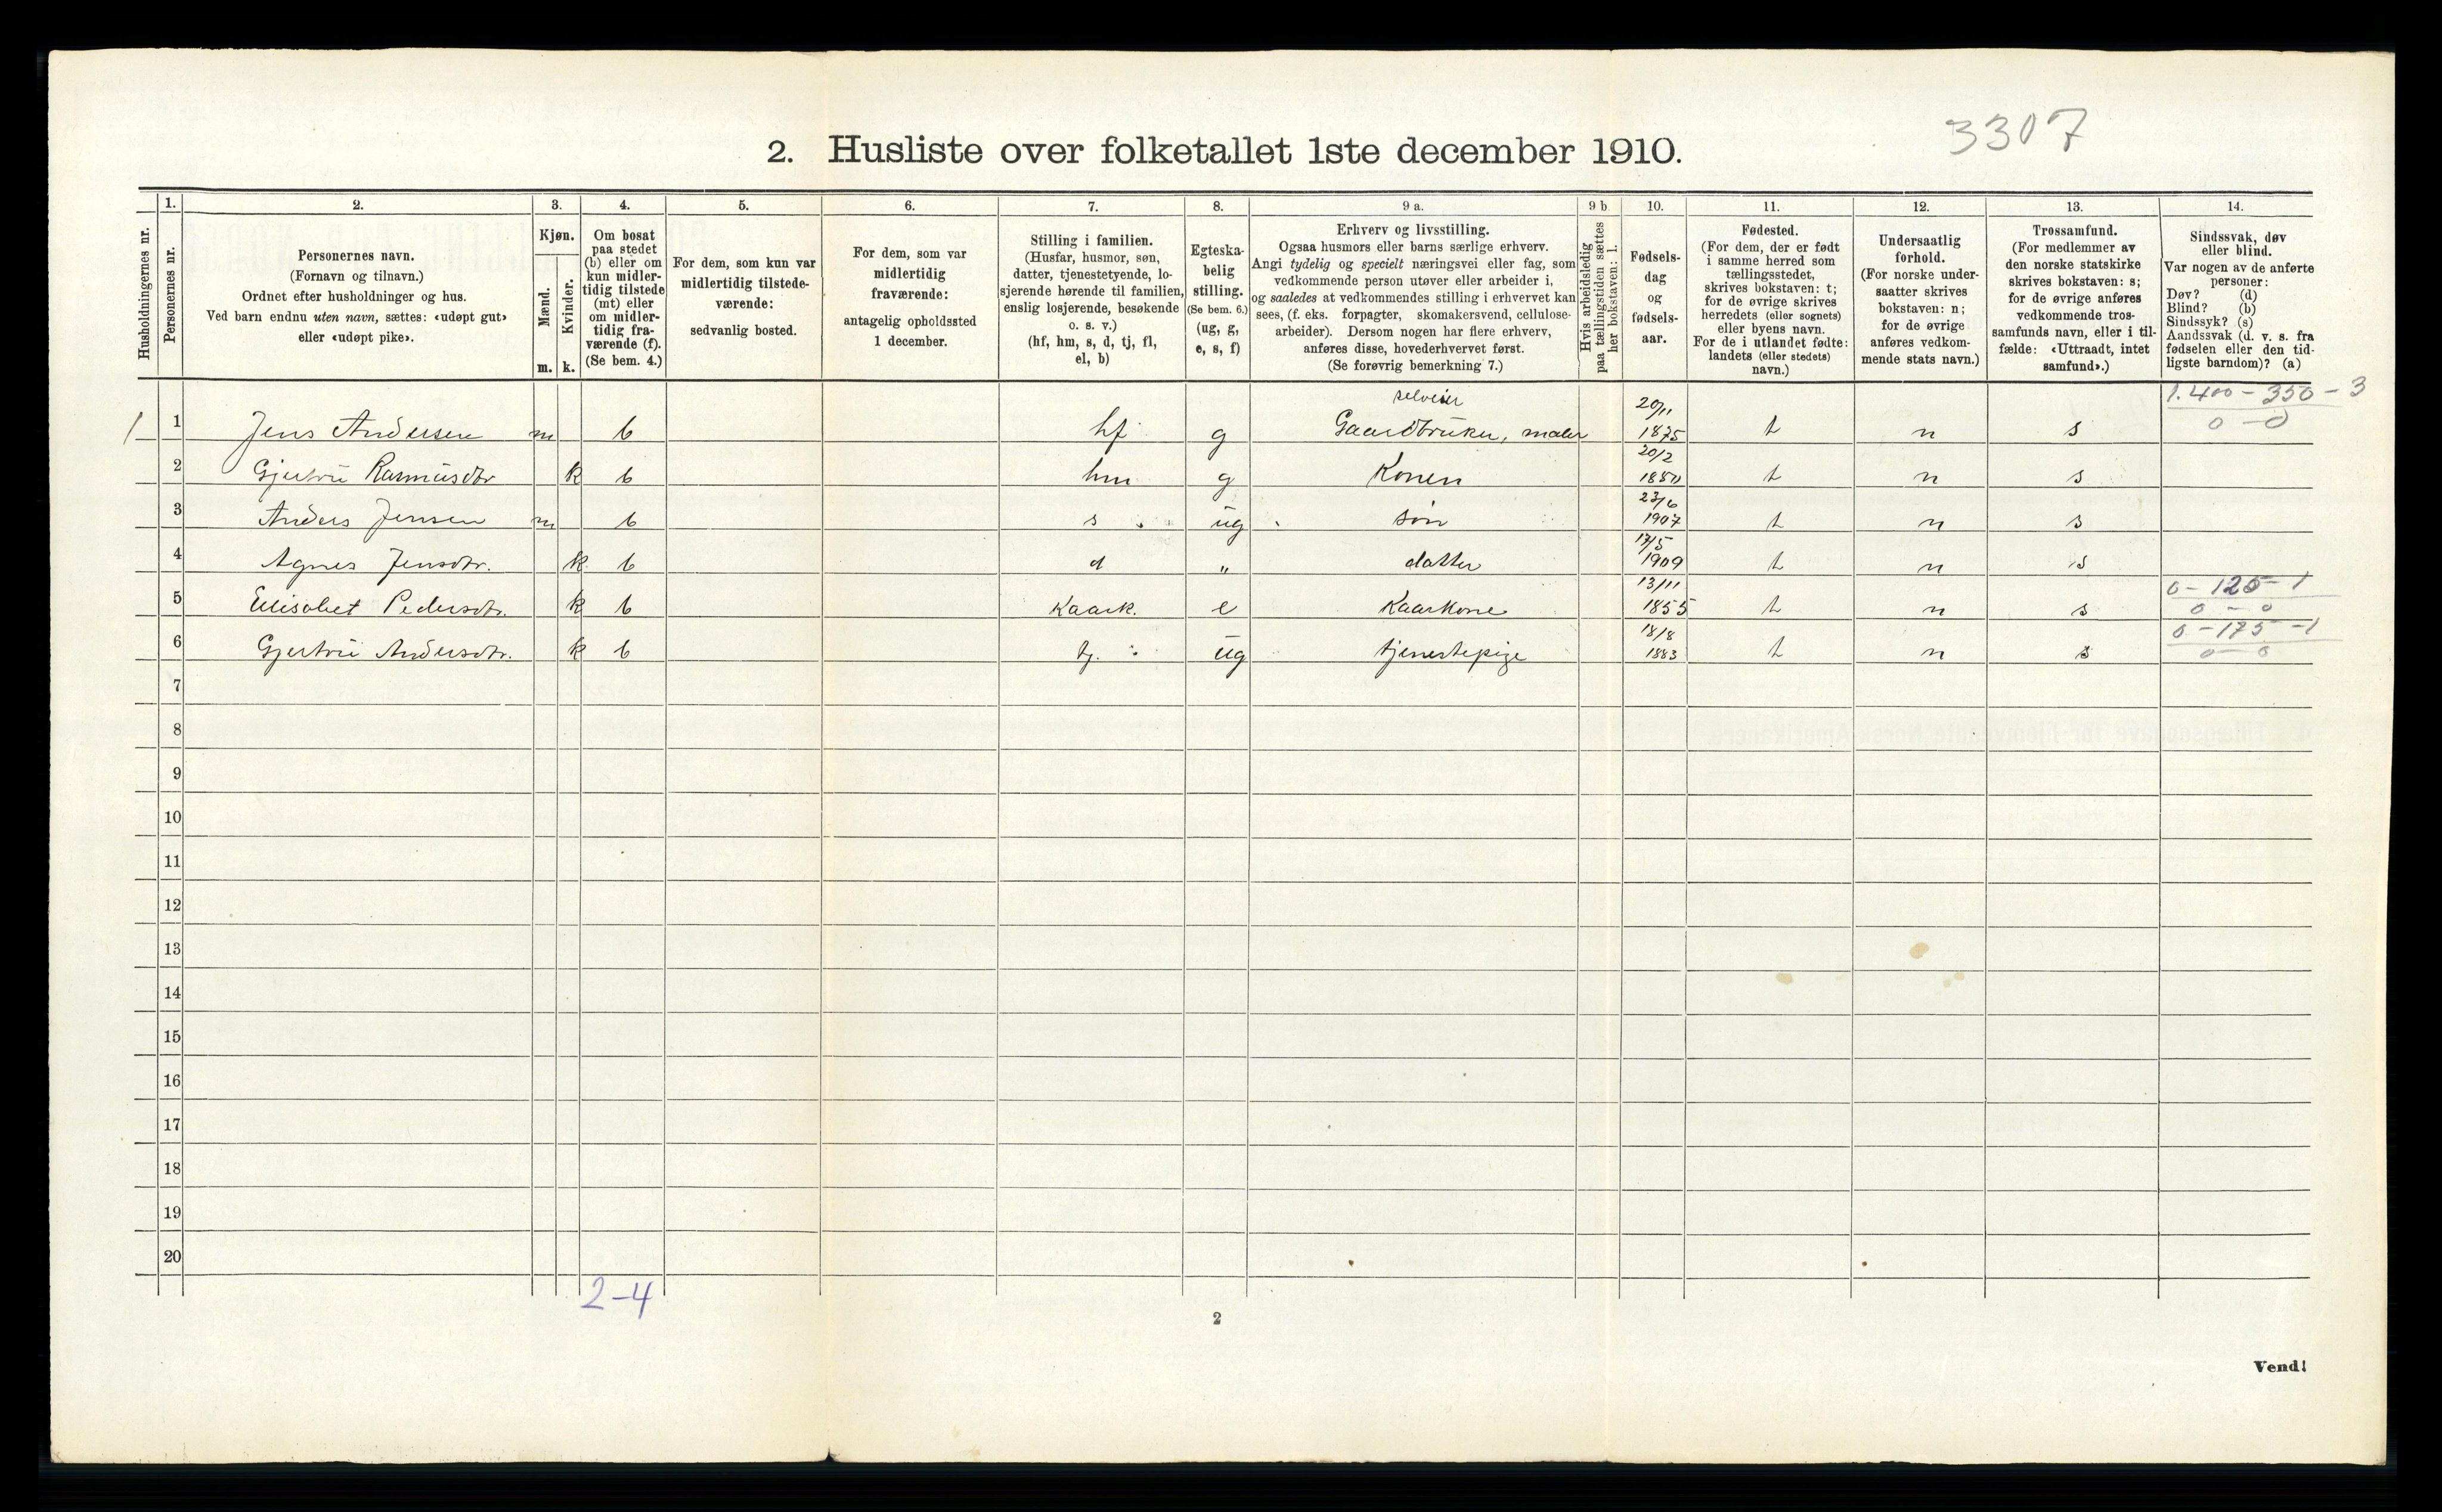 3307
2. Husliste over folketallet 1ste december 1910.
Husholdningernes nr.
1.
Personernes nr.
2.
Personernes navn.
(Fornavn og tilnavn.)
Ordnet efter husholdninger og hus.
Ved barn endnu uten navn, sættes: «udøpt gut»
eller «udøpt pike».
3.
Kjøn.
Mænd.
Kvinder.
m. k.
4.
Om bosat
paa stedet
(b) eller om
kun midler-
tidig tilstede
(mt) eller
om midler-
tidig fra-
værende (f).
(Se bem. 4.)
5.
For dem, som kun var
midlertidig tilstede-
værende:
sedvanlig bosted.
6.
For dem, som var
midlertidig
fraværende:
antagelig opholdssted
1 december.
7.
Stilling i familien.
(Husfar, husmor, søn,
datter, tjenestetyende, lo-
sjerende hørende til familien,
enslig losjerende, besøkende
o. s. v.)
(hf, hm, s, d, tj, fl,
el, b)
8.
Egteska-
belig
stilling.
(Se bem. 6.)
(ug, g,
e, s, f)
9 a.
Erhverv og livsstilling.
Ogsaa husmors eller barns særlige erhverv.
Angi tydelig og specielt næringsvei eller fag, som
vedkommende person utøver eller arbeider i,
og saaledes at vedkommendes stilling i erhvervet kan
sees, (f. eks. forpagter, skomakersvend, cellulose-
arbeider). Dersom nogen har flere erhverv,
anføres disse, hovederhvervet først.
(Se forøvrig bemerkning 7.)
9 b
Hvis arbeidsledig
paa tællingstiden sættes
her bokstaven: l.
10.
Fødsels-
dag
og
fødsels-
aar.
11.
Fødested.
(For dem, der er født
i samme herred som
tællingsstedet,
skrives bokstaven: t;
for de øvrige skrives
herredets (eller sognets)
eller byens navn.
For de i utlandet fødte:
landets (eller stedets)
navn.)
12.
Undersaatlig
forhold.
(For norske under-
saatter skrives
bokstaven: n;
for de øvrige
anføres vedkom-
mende stats navn.)
13.
Trossamfund.
(For medlemmer av
den norske statskirke
skrives bokstaven: s;
for de øvrige anføres
vedkommende tros-
samfunds navn, eller i til-
fælde: «Uttraadt, intet
samfund».)
14.
Sindssvak, døv
eller blind.
Var nogen av de anførte
personer:
Døv? (d)
Blind? (b)
Sindssyk? (s)
Aandssvak (d. v. s. fra
fødselen eller den tid-
ligste barndom)? (a)
selveier 20/11 1.400 - 350 - 3
1 1 Jens Andersen m b hf g Gaardbruker, maler 1875 t n s 0 - 0
20/2
2 Gjertrü Rasmüsdtr k b hm g Konen t n s
23/6
3 Anders Jensen m b s ug søn 1907 t n s
17/5
4 Agnes Jensdtr. k b d „ datter 1909 t n s
13/11 0 - 125 - 1
5 Elisabet Pedersdtr. k b Kaark. e Kaarkone 1855 t n s 0 - 0
18/8 0 - 175 - 1
6 Gjertrü Andersdtr. k b tj. ug tjenestepige 1883 t n s 0 0
7
8
9
10
11
12
13
14
15
16
17
18
19
20
2-4
2
Vend!